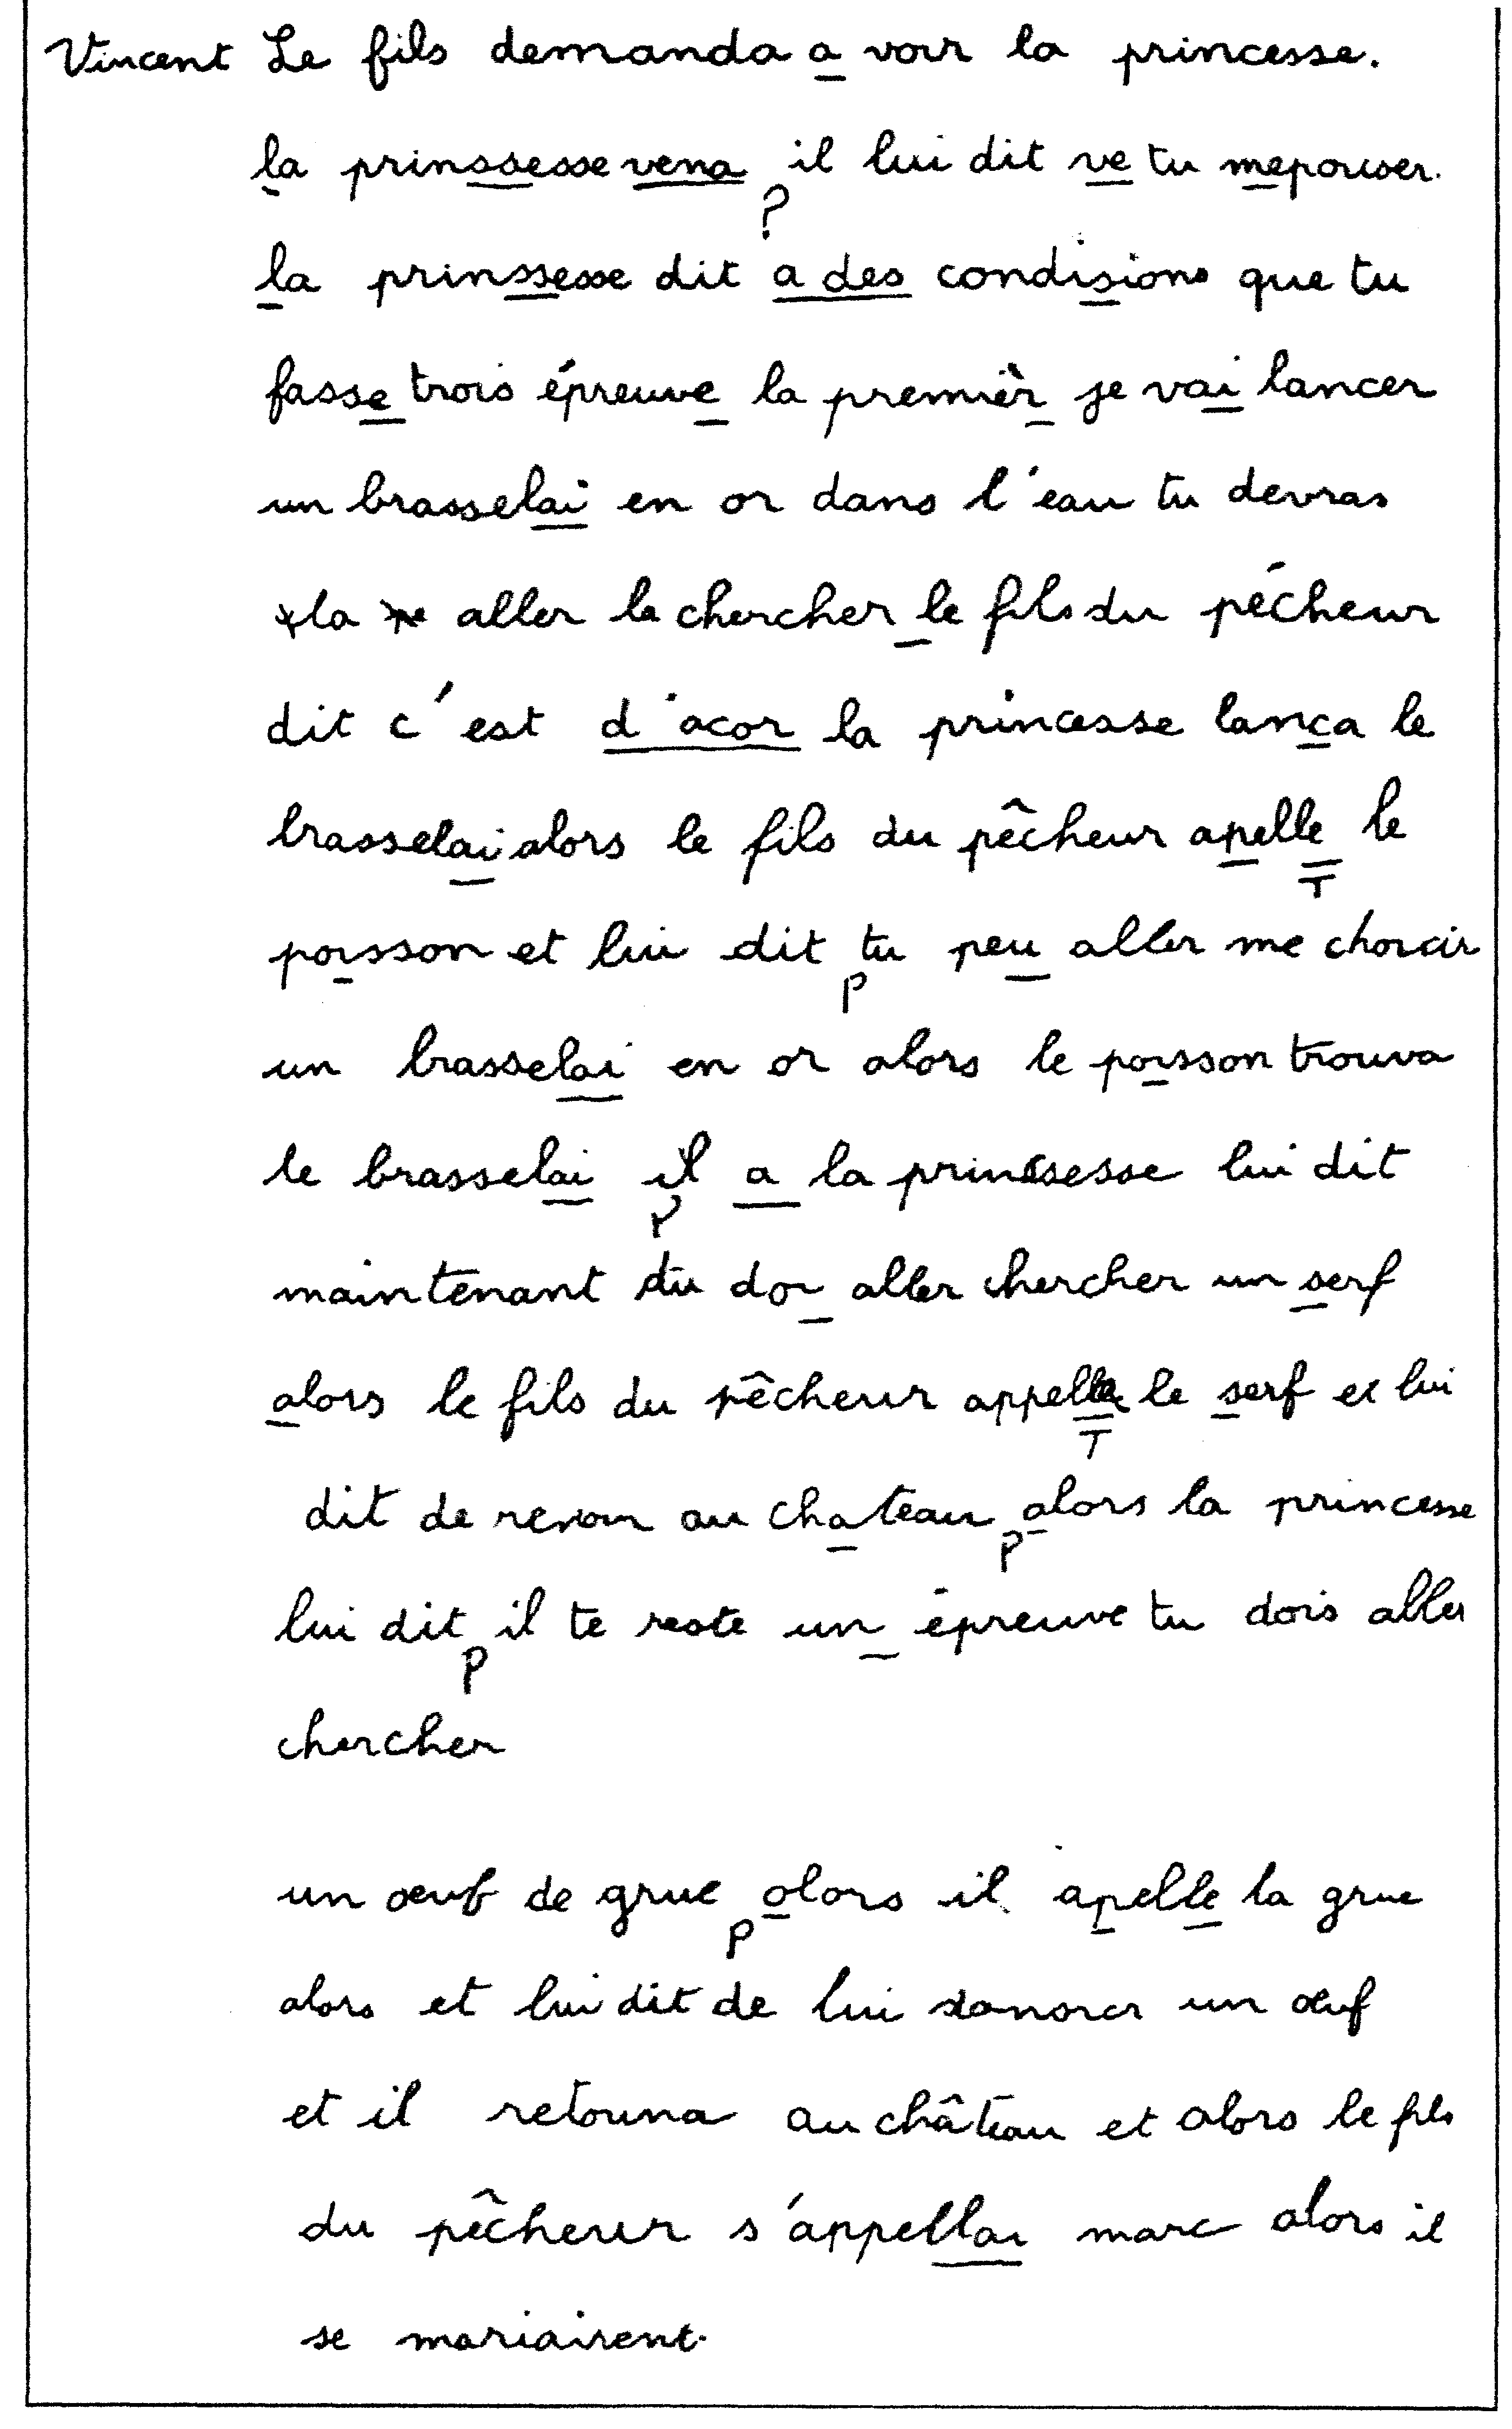 Vincent Le fils demanda a voir la princesse.
la prinssesse vena il lui dit ve tu mepouser.
?
la prinssesse dit a des condisions que tu
fasse trois épreuve la premièr je vai lancer
un brasselai en or dans l'eau tu devras
la aller le chercher le fils du pécheur
dit c'est d'acor la princesse lanca le
brasselai alors le fils du pêcheur apelle le
T
poisson et lui dit tu peu aller me
P
un brasselai en or alors le poisson trouva
le brasselai il a la princsesse lui dit
P
maintenant du doi aller chercher un serf
alors le fils du pêcheur appelle le serf et lui
T
dit de au chateau alors la princesse
P
lui dit il te reste un épreuve tu dois aller
P
chercher
un œuf de grue alors il apelle la grue
P
alors et lui dit de lui un œuf
et il retouna au château et alors le fils
du pêcheur s'appellai marc alors il
se mariairent.